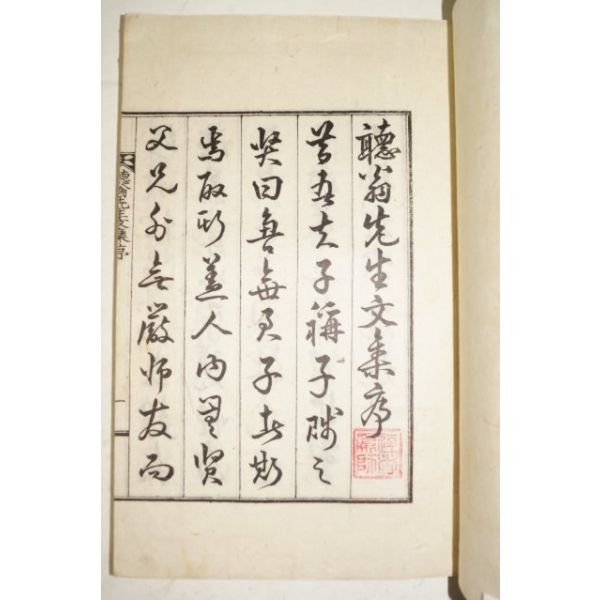 聽翁先生文集序
昔吾夫子稱子賤之
賢曰魯無君子者斯
焉取斯盖人內無賢
父兄外無嚴師友而
聽翁先生文集序
一